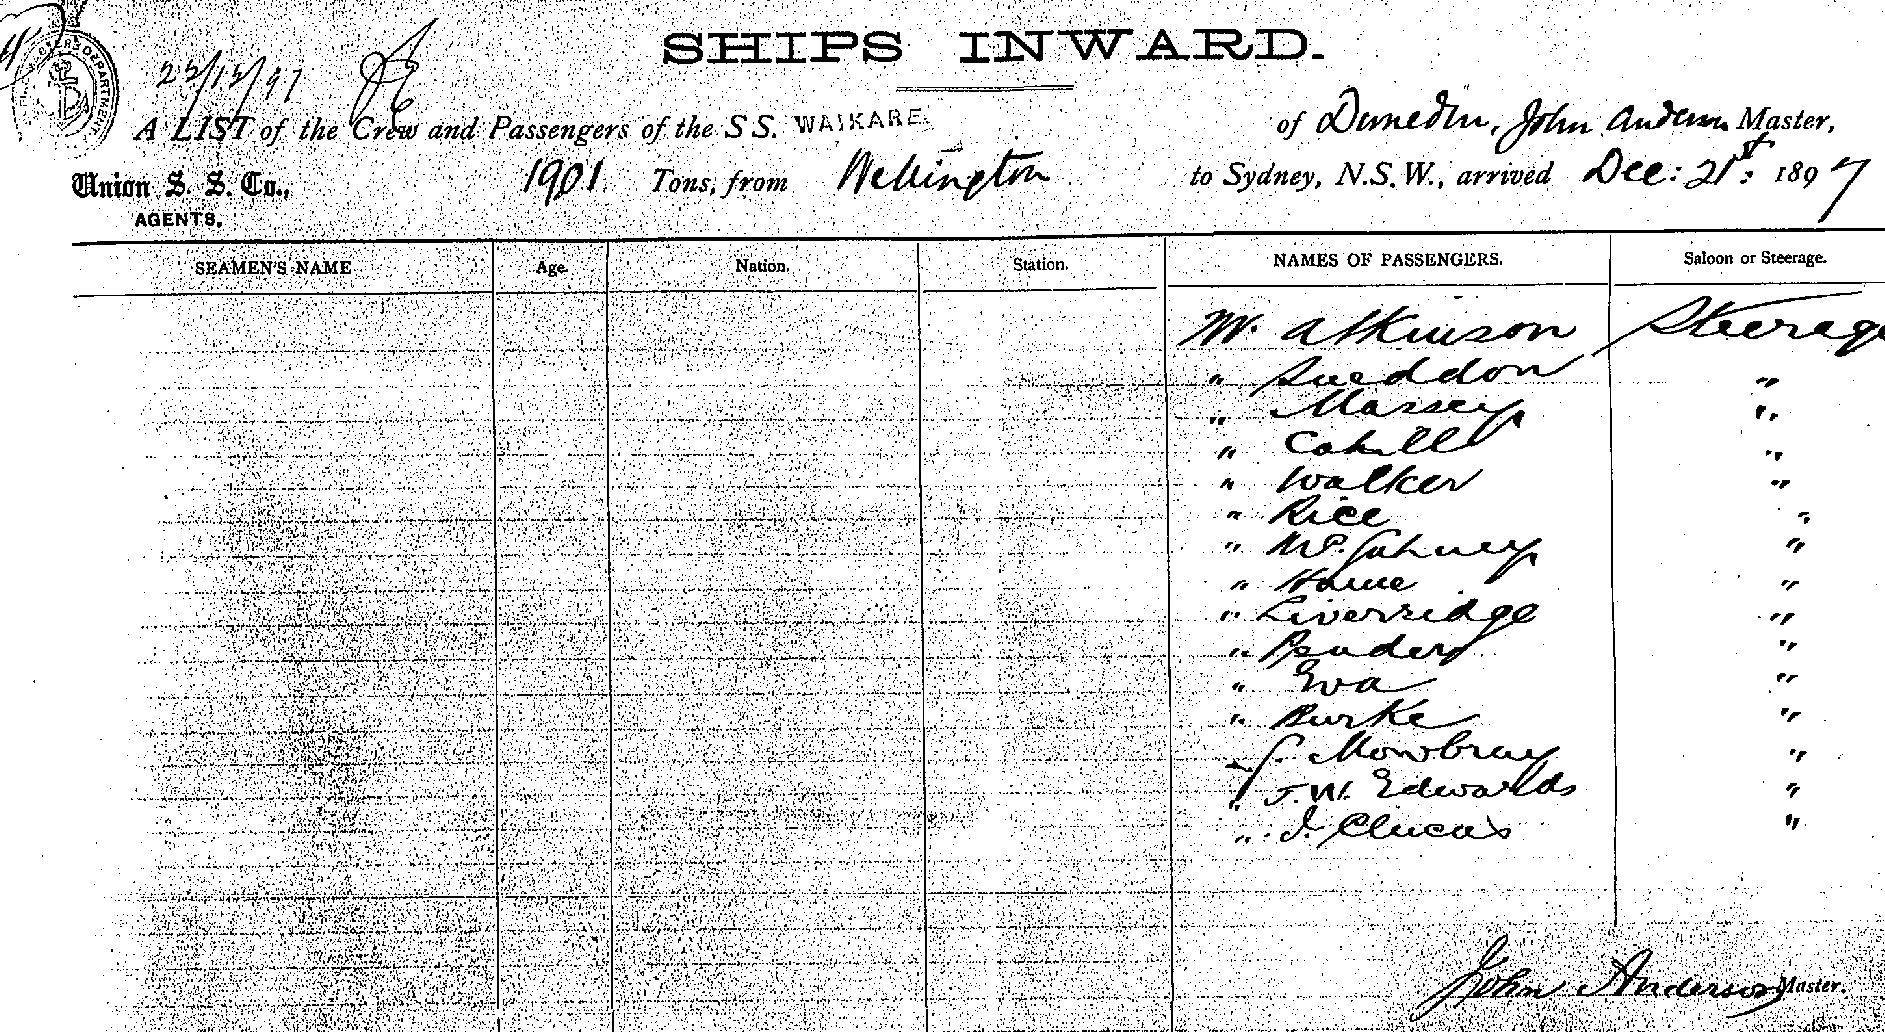 SHIPS INWARD.
22/12/97
A LIST of the Crew and Passengers of the S S. WAIKARE. of Dunedin, John Anderson Master,
Union S. S. Co., 1901 Tons, from Wellington to Sydney, N.S.W., arrived Dec: 21st: 1897
AGENTS.
SEAMEN'S NAME Age. Nation. Station. NAMES OF PASSENGERS. Saloon or Steerage.
Mr. Atkinson Steerage
" Sneddon "
" Massey "
" Cahill "
" Walker "
" Rice "
" "
" Hame "
" Liverridge "
" "
" Eva "
" Burke "
" Mowbray "
" J. W. Edwards "
" J. Clucas "
John Anderson Master.